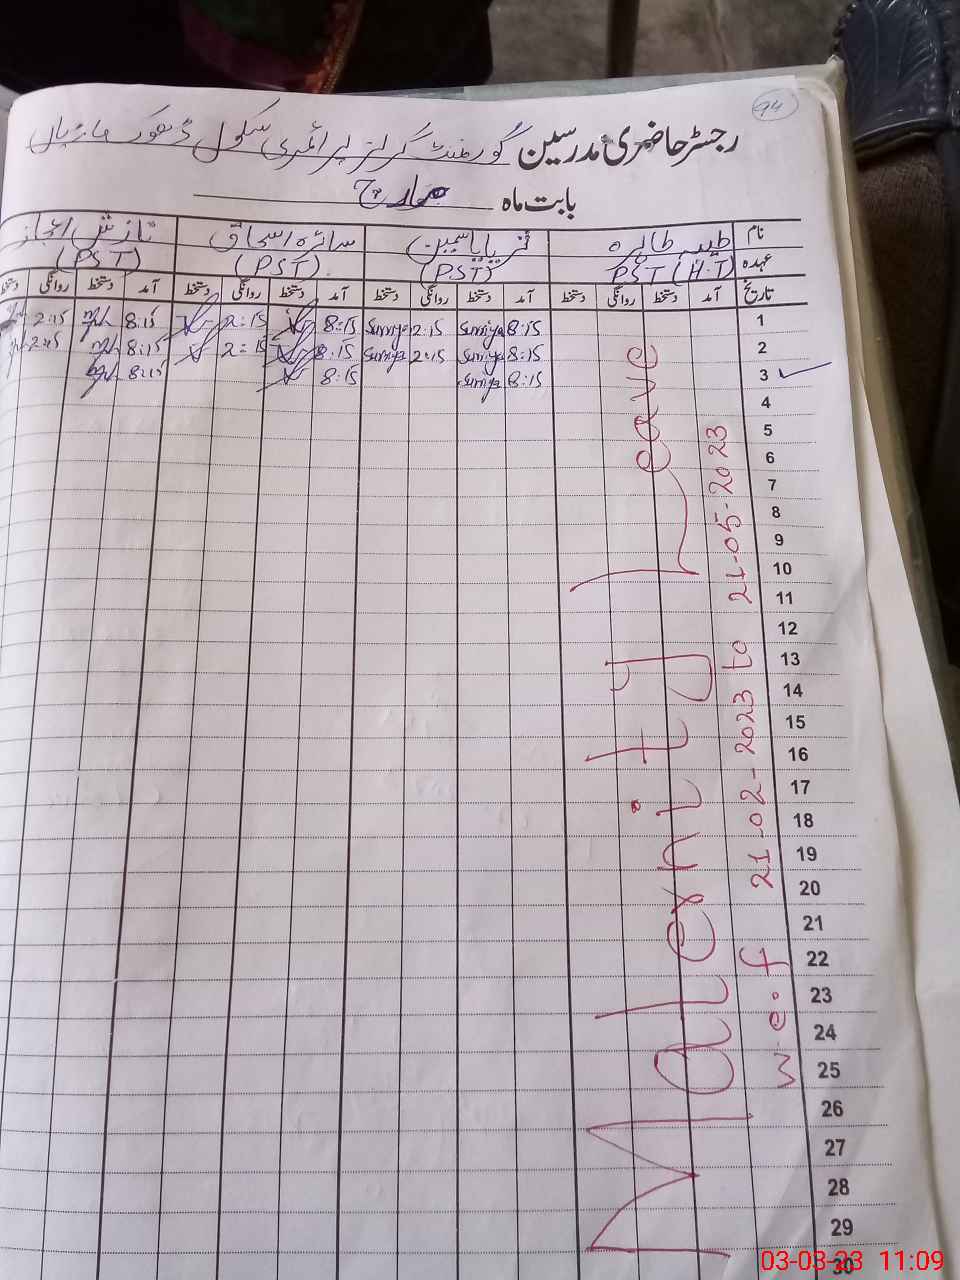 94
رجسٹر حاضری مدرسین گورنمنٹ گرلز پرائمری سکول ڈھوک ماڑیاں
بابت ماہ مارچ
نام طیبہ طاہرہ ثریا یاسمین سائرہ اسحاق نازش اعجاز
عہدہ PST (H.T) (PST) (PST) (PST)
تاریخ آمد دستخط روانگی دستخط آمد دستخط روانگی دستخط آمد دستخط روانگی دستخط آمد دستخط روانگی دستخط
1 8:15 Surriya 2:15 Surriya 8:15 2:15 8:15 2:15
2 8:15 Surriya 2:15 Surriya 8:15 2:15 8:15 2:15
3 8:15 Surriya 8:15 8:15
4
5
6
7
8
9
10
11
12
13
14
15
16
17
18
19
20
21
22
23
24
25
26
27
28
29
30
Maternity Leave
w.e.f 21-02-2023 to 21-05-2023
03-03-23 11:09